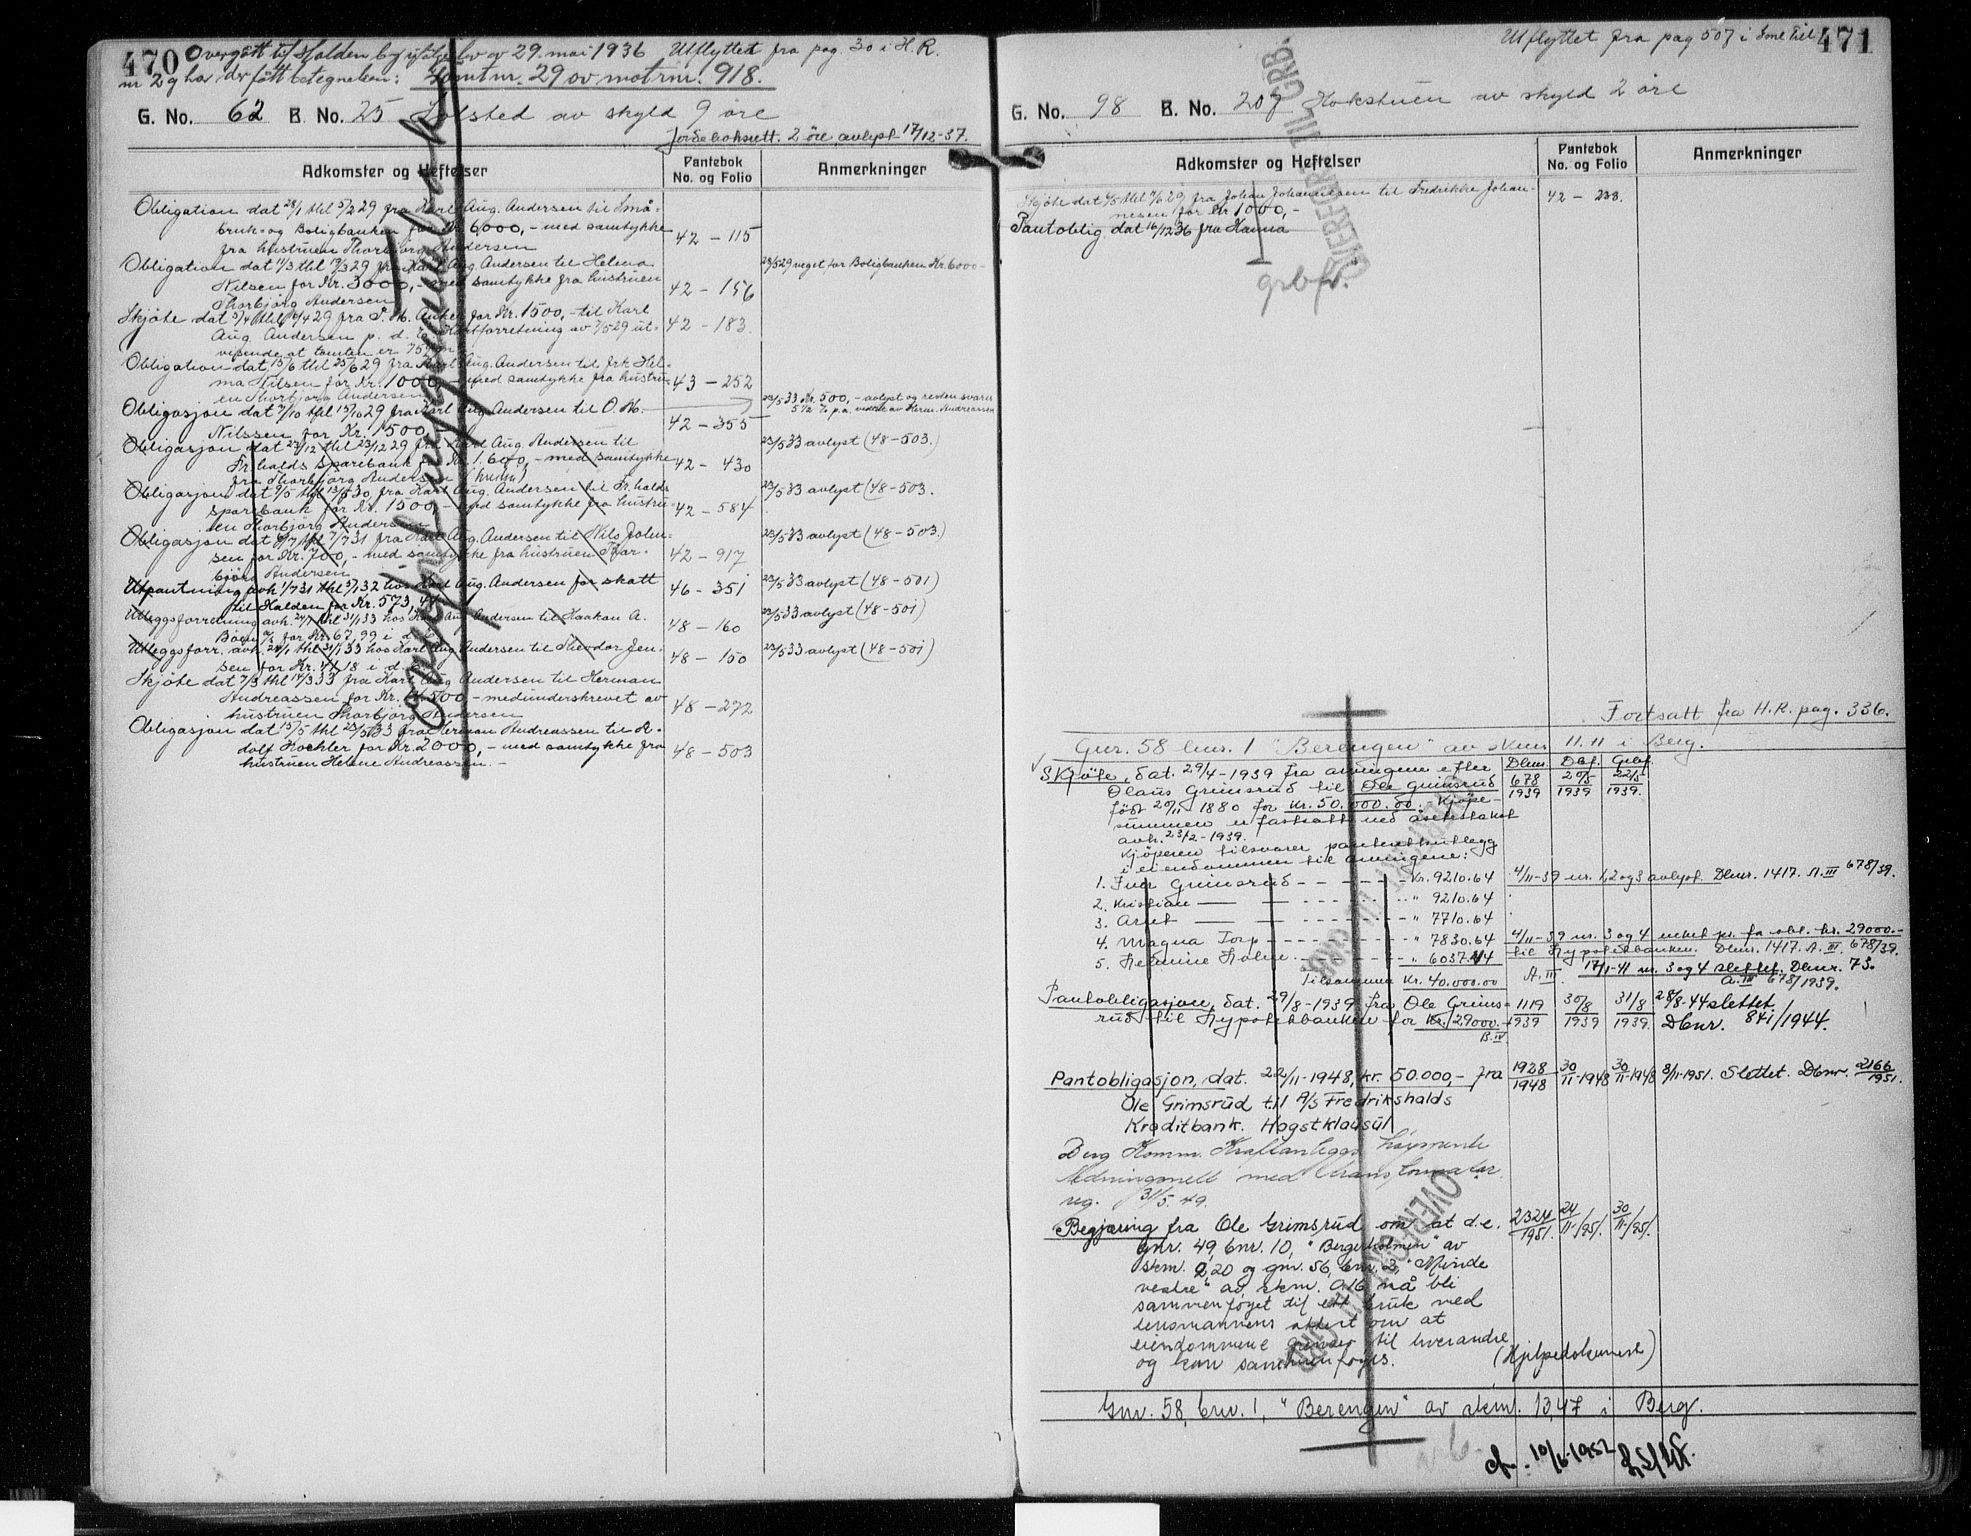 470 Overgått til Halden by ifølge lov av 29. mai 1936 Utflyttet fra pag. 30 i H.R.
nr 2 og har der fått betegnelsen: Tomtnr. 29 av matrnr. 918.
G. No. 62 B. No. 25 Solsted av skyld 9 øre
Jordeboksrett. 2 øre, avlyst 17/12-37.
Adkomster og Heftelser Pantebok No. og Folio Anmerkninger
Obligation dat 28/1 thl 5/2 29 fra Karl Aug. Andersen til Små-
bruk- og Boligbanken for Kr. 6000,- med samtykke 42 - 115
fra hustruen Thorbjörg Andersen
Obligation dat 11/3 thl 19/3 29 fra Karl Aug. Andersen til Helena 29/5 29 veget for Boligbanken Kr. 6000-
Nilsen for Kr. 3000,- med samtykke fra hustruen 42 - 156
Thorbjörg Andersen
Skjöte dat 5/4 thl 9/4 29 fra P. M. Anker for Kr. 1500,- til Karl 42 - 183
Aug. Andersen p. d. e. Kartforretning av 7/5 29 ut-
visende at tomten er
Obligation dat 15/6 thl 25/6 29 fra Karl Aug. Andersen til frk Hel-
ma Nilsen for Kr. 1000,- med samtykke fra hustru- 43 - 252
en Thorbjörg Andersen
Obligasjon dat 7/10 thl 15/10 29 fra Karl Aug. Andersen til O. M. 42 - 355 23/5 33 Kr. 500,- avlyst og resten svarer
5 1/2 % p.a. vedtatt av Herm. Andreassen
Nilssen for Kr. 1500,-
Obligasjon dat 23/12 thl 23/12 29 fra Karl Aug. Andersen til 23/5 33 avlyst (48-503.)
Fr.halds Sparebank for Kr. 1600,- med samtykke 42 - 430
fra Thorbjörg Andersen (hustru)
Obligasjon dat 9/5 thl 13/5 30 fra Karl Aug. Andersen til Fr.halds 23/5 33 avlyst (48-503.
sparebank for Kr. 1500,- med samtykke fra hustru- 42 - 584
en Thorbjörg Andersen
Obligasjon dat 6/7 thl 7/7 31 fra Karl Aug. Andersen til Nils John- 23/5 33 avlyst (48-503.)
sen for Kr. 700,- med samtykke fra hustruen Thor- 42 - 917
björg Andersen
Utpantning avh. 1/7 31 thl 5/1 32 hos Karl Aug. Andersen for skatt 46 - 351 23/5 33 avlyst (48-501)
til Halden for Kr. 573,44
Utleggsforretning avh. 24/1 thl 31/1 33 hos Karl Aug. Andersen til Haakon A. 48 - 160 23/5 33 avlyst (48-501)
Böen for Kr. 67,99 i d. e.
Utleggsforr. avh. 24/1 thl 31/1 33 hos Karl Aug. Andersen til Theodor Jen- 48 - 150 23/5 33 avlyst (48-501)
sen for Kr. 41,18 i d. e.
Skjöte dat 7/3 thl 14/3 33 fra Karl Aug Andersen til Herman
Andreassen for Kr. 14500 - medunderskrevet av 48 - 272
hustruen Thorbjörg Andersen
Obligasjon dat 15/5 thl 23/5 33 fra Herman Andreassen til R-
dolf Hoehler for Kr. 2000,- med samtykke fra 48 - 503
hustruen Helene Andreassen.
Utflyttet fra pag 507 i 471
G. No. 98 B. No. 207 Kokstuen av skyld 2 øre
OVERFØRT TIL GRB.
Adkomster og Heftelser Pantebok No. og Folio Anmerkninger
Skjöte dat 4/5 thl 4/6 29 fra Johan Johannesen til Fredrikke Johan- 42 - 238.
nesen for Kr 1000,-
Pantoblig. dat 16/12 36 fra Hanna
grbf.
Fortsatt fra H.R. pag. 336.
Gnr. 58 bnr. 1 "Berengen" av skm 11.11 i Berg.
Skjöte, dat. 29/4-1939 fra arvingene efter Dbnr. Dbf. Grbf.
Olaus Grimsrud til Ole Grimsrud 678/1939 20/5 1939 22/5 1939.
født 20/11 1880 for Kr. 50.000.00. Kjöpe-
summen er fastsatt ved åsetestakst
avh. 23/2-1939.
Kjöperen tilsvarer pantentututlegg
i eiendommen til arvingene:
1. Iver Grimsrud - - - - - Kr. 9210.64 4/11-39 nr. 1, 2 og 3 avlyst. Dbnr. 1417. A. III 678/39.
2. Kristian — — - - - - - " 9210.64
3. Arnt — — - - - - - " 7710.64
4. Magna Torp - - - - - " 7830.64 4/11-39 nr. 3 og 4 veket pr. fa obl. kr. 29000.-
til Hypotekbanken. Dbnr. 1417. A. III 678/39.
5. Helmine Holm - - - - - " 6037.44
17/1-41 nr. 3 og 4 slettet. Dbnr. 73.
Tilsammen Kr. 40.000.00 A. III A. III 678/1939.
Pantobligasjon, dat. 29/8-1939 fra Ole Grims- 1119/1939 30/8 1939 31/8 1939. 28/8-44 slettet
rud til Hypotekbanken for Kr. 29000.- Dbnr. 841/1944.
B. IV
Pantobligasjon, dat. 22/11-1948, kr. 50.000,- fra 1928/1948 30/11-1948 30/11-1948 8/11-1951. Slettet. Dbnr. 2166/1951.
Ole Grimsrud til A/S Fredrikshalds
Kreditbank. Hogstklausul
Berg Komm. Kraftanleggs høyspente
ledningsnett med transformator
reg. 31/5.49.
Begjæring fra Ole Grimsrud om at d.e. 2324/1951. 24/11-1951. 30/11-1951.
gnr. 49, bnr. 10, "Bergerholmen" av
skm. 2,20 og gnr. 56, bnr. 2, "Minde
vestre" av skm. 0,16 må bli
sammenføyet til ett bruk med
lensmannens attest om at
eiendommene grenser til hverandre
og kan sammenføyes. (Hjelpedokument)
Gnr. 58, bnr. 1, "Berengen" av skm. 13,47 i Berg.